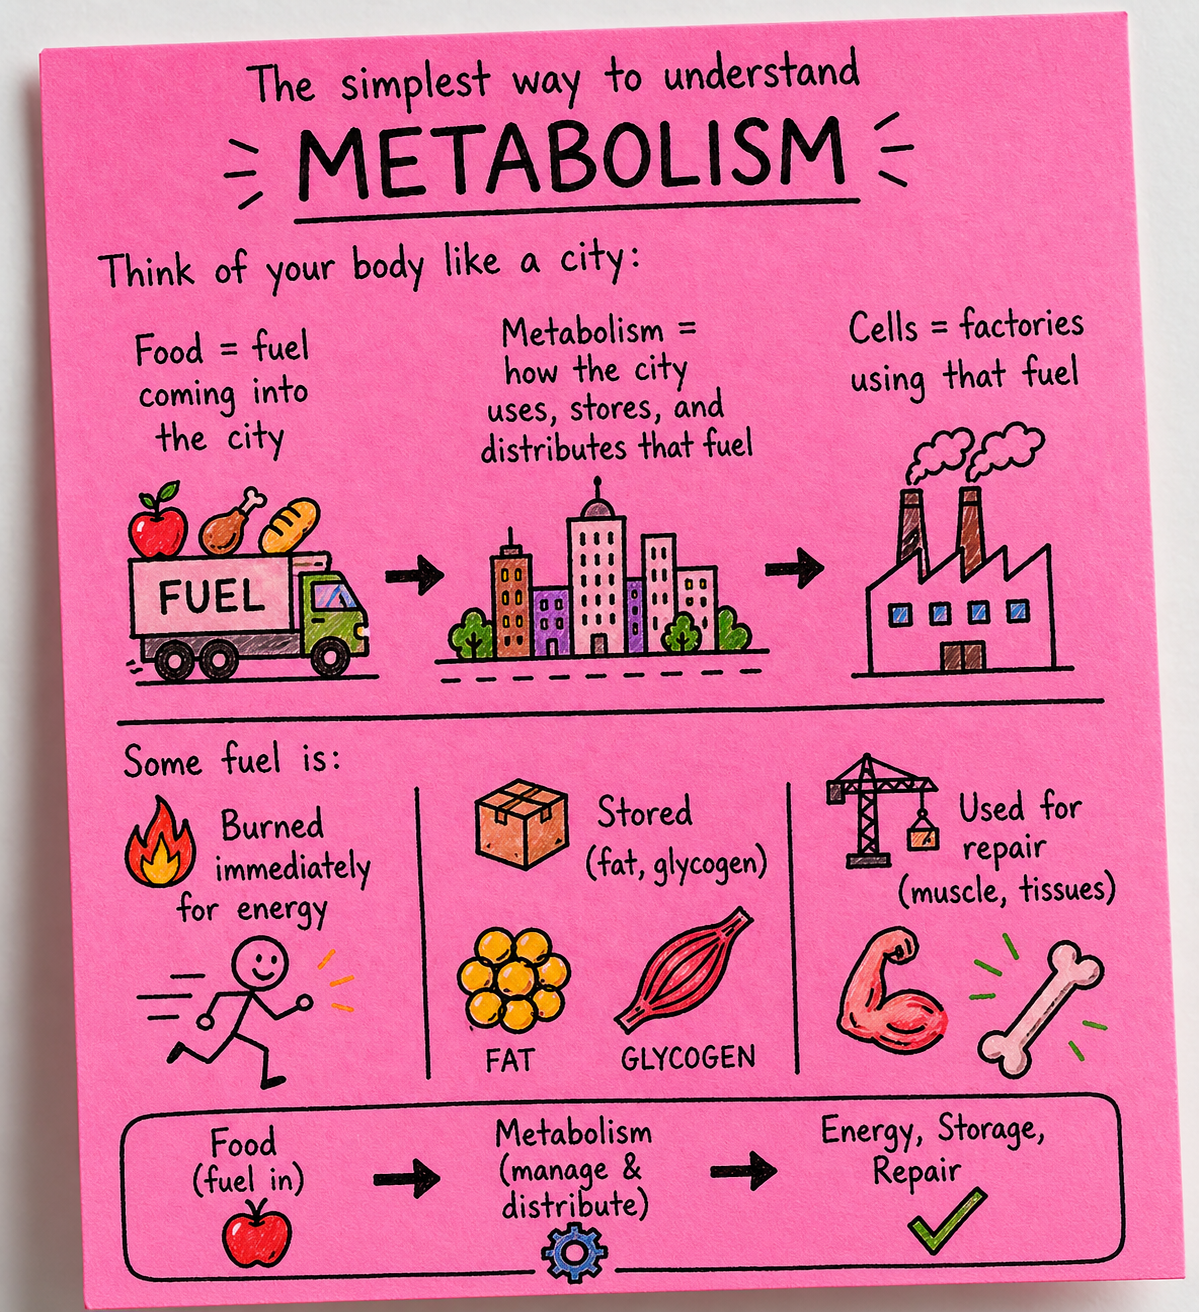 The simplest way to understand
METABOLISM
Think of your body like a city:
Food = fuel
coming into
the city
Metabolism =
how the city
uses, stores, and
distributes that fuel
Cells = factories
using that fuel
FUEL
Some fuel is:
Burned
immediately
for energy
Stored
(fat, glycogen)
FAT
GLYCOGEN
Used for
repair
(muscle, tissues)
Food
(fuel in)
Metabolism
(manage &
distribute)
Energy, Storage,
Repair